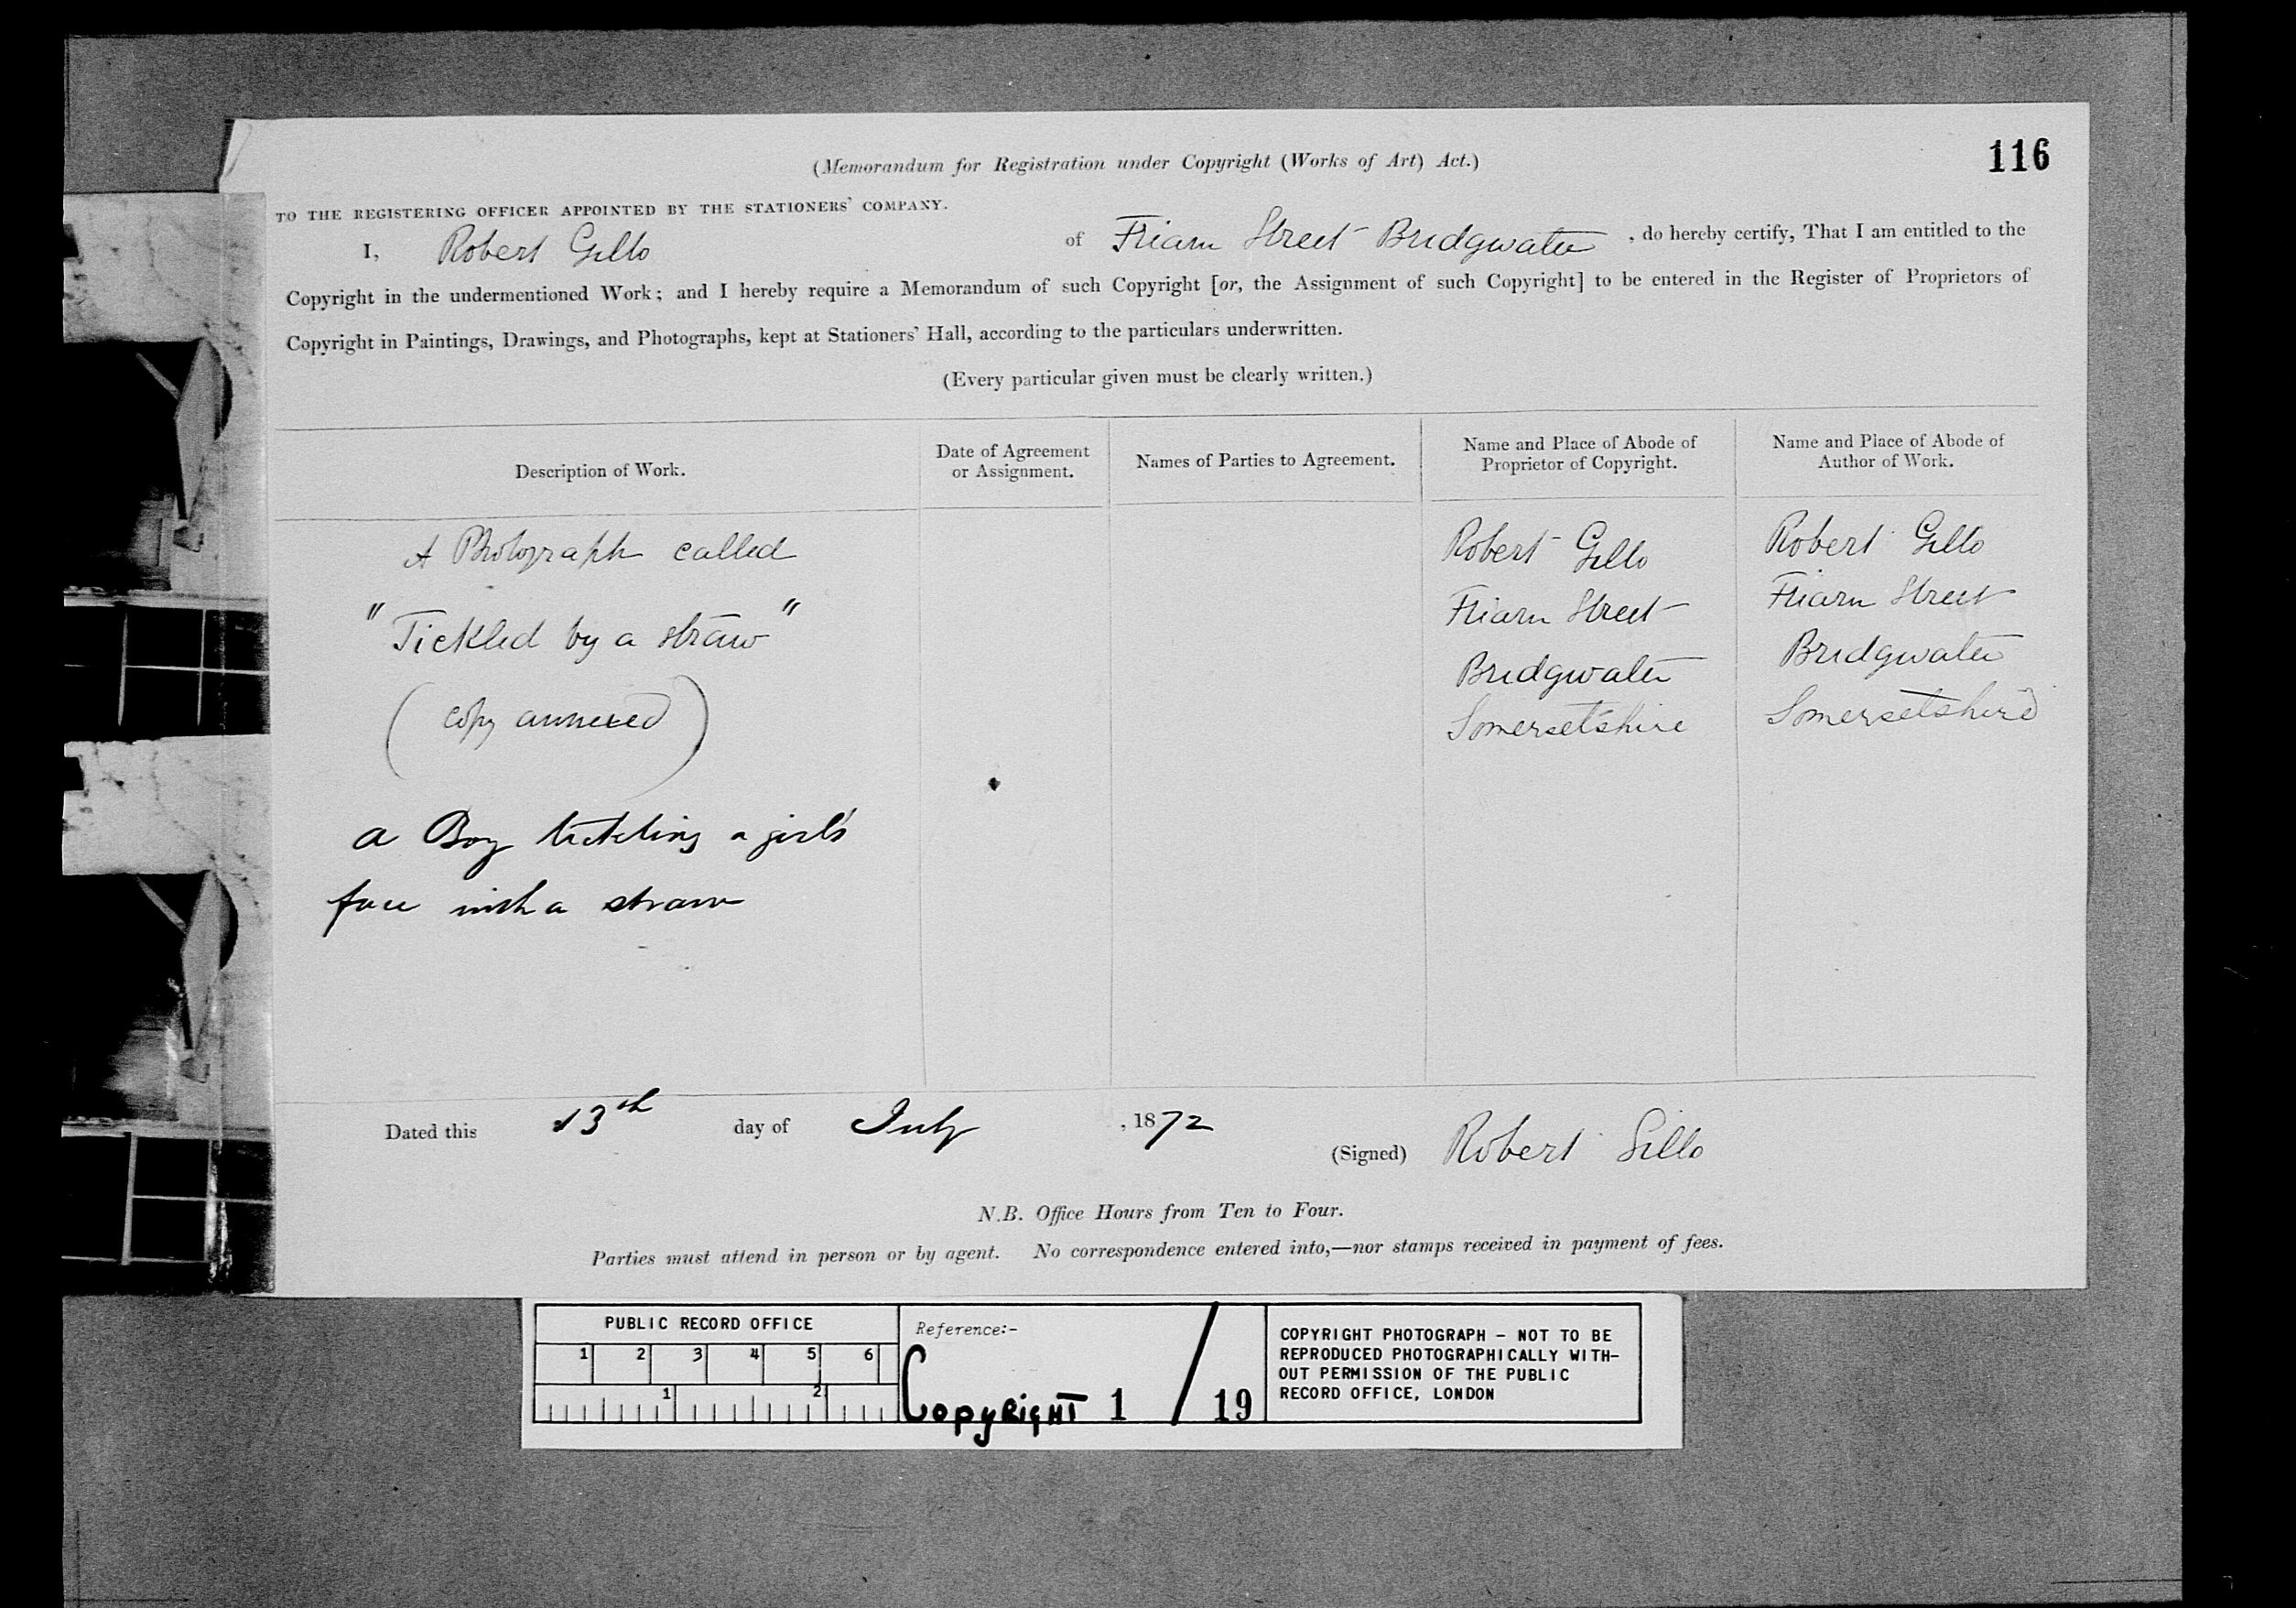 116
(Memorandum for Registration under Copyright (Works of Art) Act.)
TO THE REGISTERING OFFICER APPOINTED BY THE STATIONERS' COMPANY.
I, Robert Gillo of Friarn Street Bridgwater, do hereby certify, That I am entitled to the
Copyright in the undermentioned Work; and I hereby require a Memorandum of such Copyright [or, the Assignment of such Copyright] to be entered in the Register of Proprietors of
Copyright in Paintings, Drawings, and Photographs, kept at Stationers' Hall, according to the particulars underwritten.
(Every particular given must be clearly written.)
Description of Work.
A Photograph called
"Tickled by a straw"
(copy annexed)
a Boy tickling a girl's
face with a straw
Date of Agreement
or Assignment.
Names of Parties to Agreement.
Name and Place of Abode of
Proprietor of Copyright.
Robert Gillo
Friarn Street
Bridgwater
Somersetshire
Name and Place of Abode of
Author of Work.
Robert Gillo
Friarn Street
Bridgwater
Somersetshire
Dated this 13th day of July, 1872
(Signed) Robert Gillo
N.B. Office Hours from Ten to Four.
Parties must attend in person or by agent. No correspondence entered into,—nor stamps received in payment of fees.
PUBLIC RECORD OFFICE
1 2 3 4 5 6
1 2
Reference:-
Copyright 1 / 19
COPYRIGHT PHOTOGRAPH - NOT TO BE
REPRODUCED PHOTOGRAPHICALLY WITH-
OUT PERMISSION OF THE PUBLIC
RECORD OFFICE, LONDON